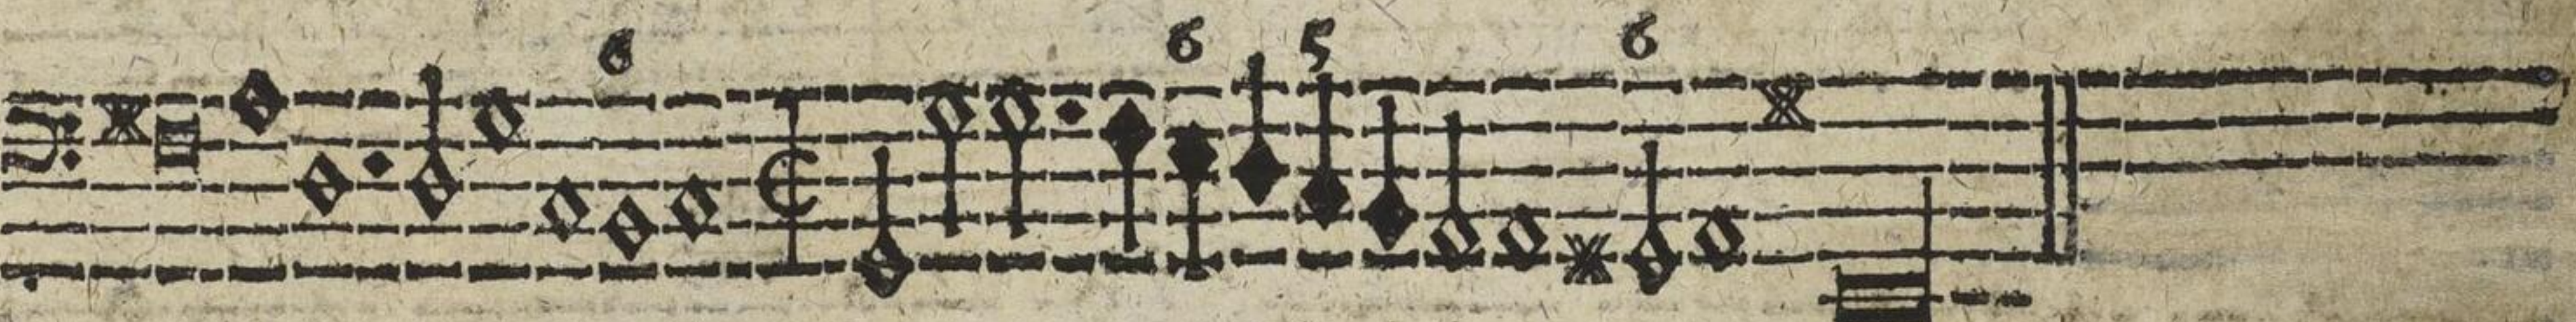 6 6 5 6